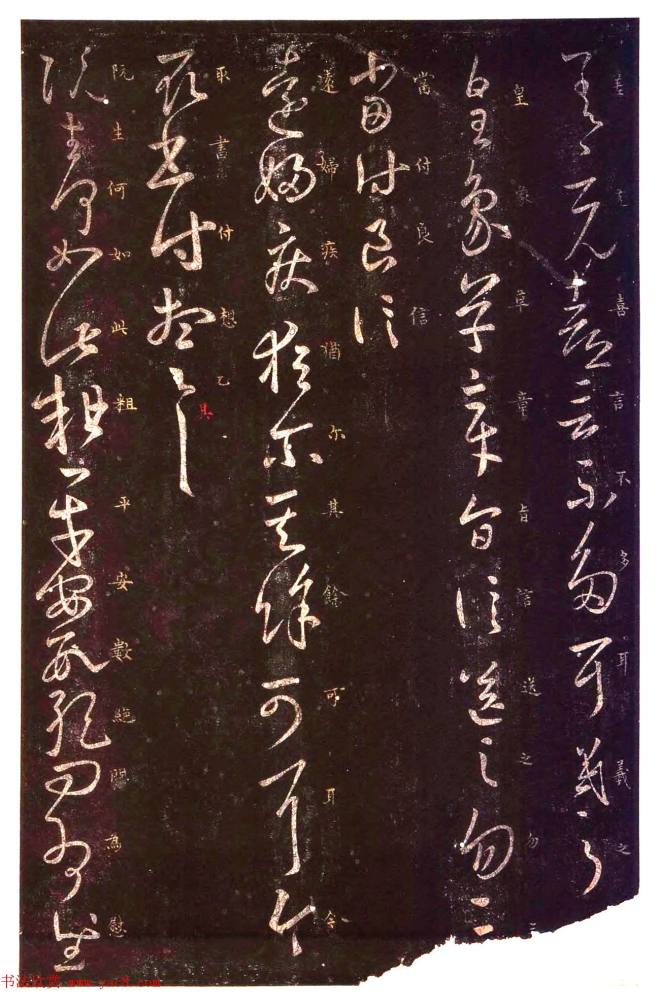 差克喜言不多耳羲之
皇象草章旨信送之勿三
當付良信
遠婦疾猶尔其餘可耳今
取書付想
阮生何如此粗平安數絶問為慰
差克喜言不多耳羲之
皇象草章旨信送之勿
當付良信
遠婦疾猶尔其餘可耳今
取書付想之
具
阮生何如此粗平安數絶問為慰
书法欣赏 www.yac8.com